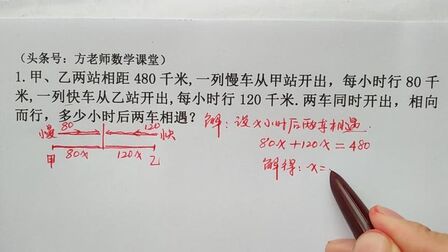 （头条号：方老师数学课堂）
1.甲、乙两站相距 480 千米,一列慢车从甲站开出，每小时行 80 千
米,一列快车从乙站开出,每小时行 120 千米.两车同时开出，相向
而行，多少小时后两车相遇？
解：设x小时后两车相遇.
慢 80 120 快
80x+120x=480
甲 80x 120x 乙
解得：x=